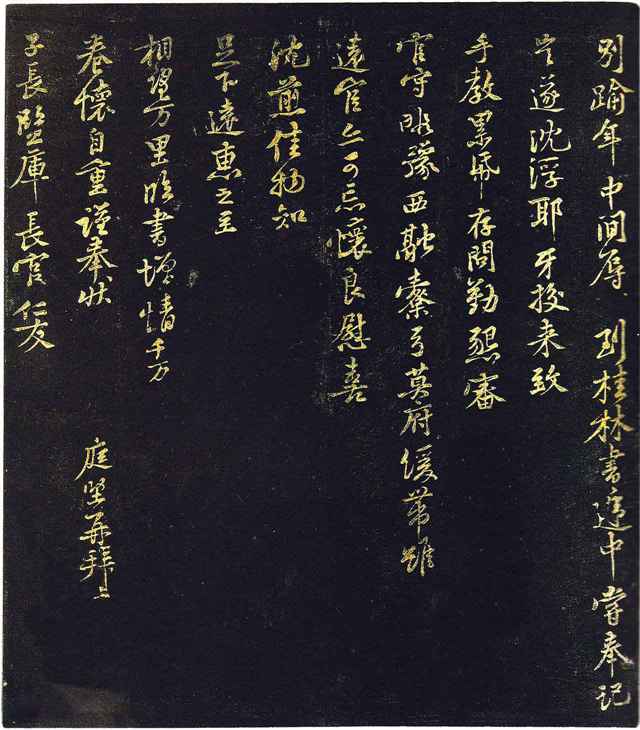 别踰年中間辱 到桂林書遞中嘗奉記
豈遂沈浮耶牙校来致
手教累帋存問勤懇審
官守暇豫西融櫜弓莫府緩帶雖
遠官亦可忘懷良慰喜
沈煎佳物知
足下遠惠之至
相望万里臨書增情千万
眷懷自重謹奉狀
庭堅再拜上
子長 庫長官仁友